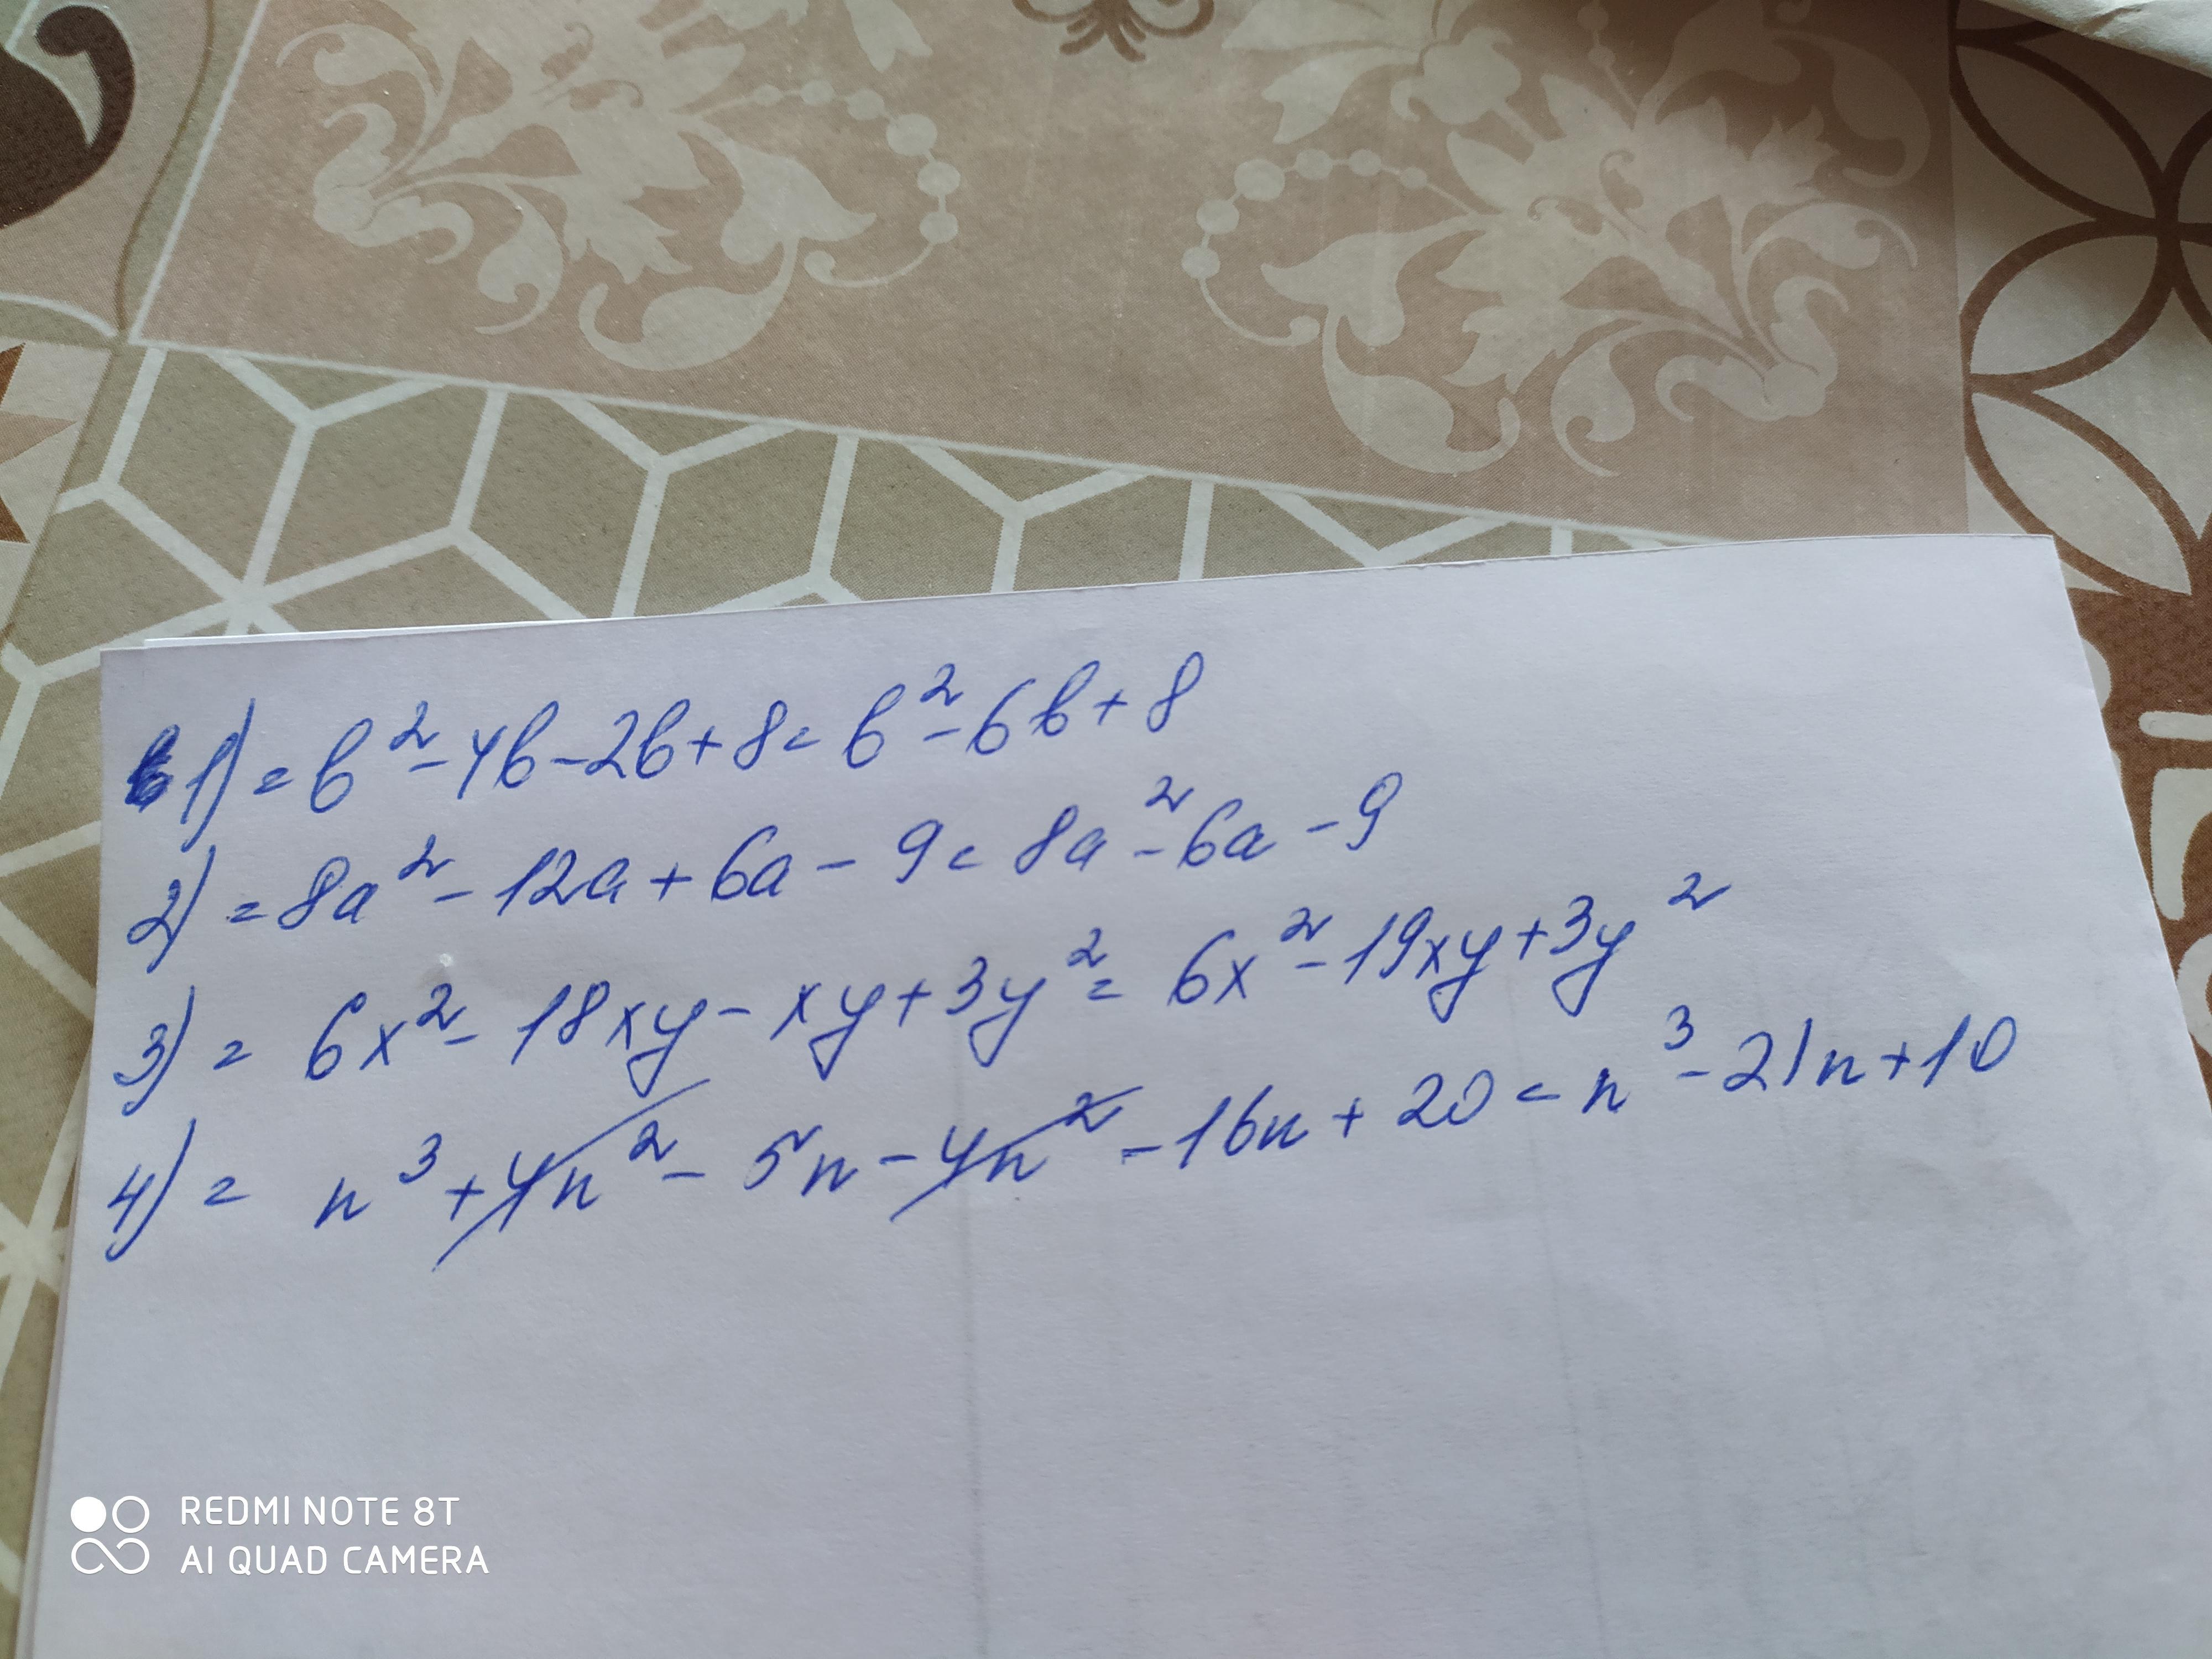 1) = b² - 4b - 2b + 8 = b² - 6b + 8
2) = 8a² - 12a + 6a - 9 = 8a² - 6a - 9
3) = 6x² - 18xy - xy + 3y² = 6x² - 19xy + 3y²
4) = n³ + 4n² - 5n - 4n² - 16n + 20 = n³ - 21n + 10
REDMI NOTE 8T
AI QUAD CAMERA